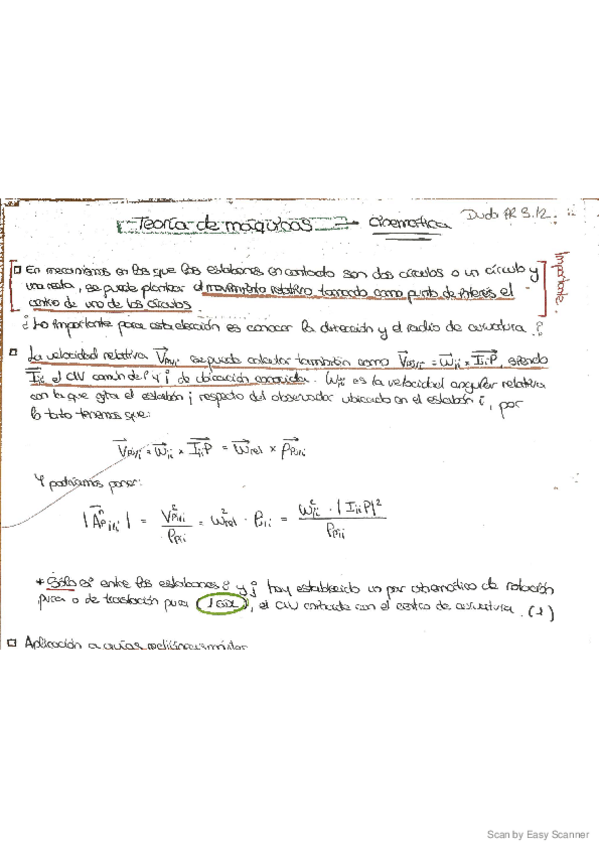 Teoría de máquinas → Cinemática Duda AR 3.12.
□ En mecanismos en los que los eslabones en contacto son dos círculos o un círculo y
una recta, se puede plantear el movimiento relativo tomando como punto de interés el
centro de uno de los círculos.
Importante.
¿Lo importante para esta elección es conocer la dirección y el radio de curvatura?
□ La velocidad relativa se puede calcular también como siendo
el CIV común de i y j de ubicación conocida. es la velocidad angular relativa
con la que gira el eslabón j respecto del observador ubicado en el eslabón i, por
lo tato tenemos que:
Y podríamos poner:
* Sólo si entre los eslabones i y j hay establecido un par cinemático de rotación
pura o de traslación pura (1GDL), el CIV coincide con el centro de curvatura. (1)
□ Aplicación a guías
Scan by Easy Scanner